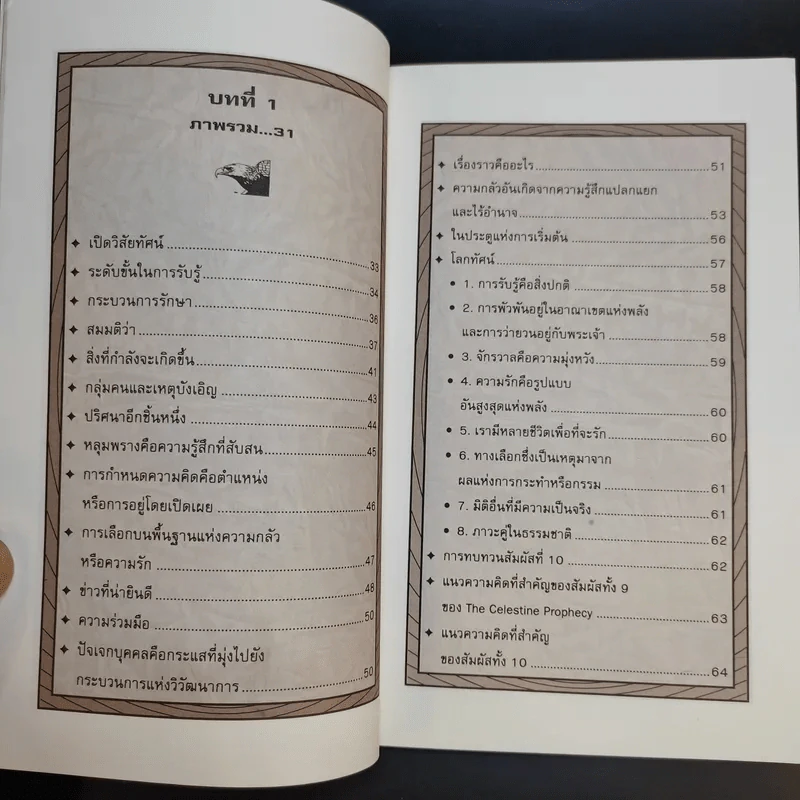 บทที่ 1
ภาพรวม...31
✦ เปิดวิสัยทัศน์ ........ 33
✦ ระดับขั้นในการรับรู้ ........ 34
✦ กระบวนการรักษา ........ 36
✦ สมมติว่า ........ 37
✦ สิ่งที่กำลังจะเกิดขึ้น ........ 41
✦ กลุ่มคนและเหตุบังเอิญ ........ 43
✦ ปริศนาอีกชิ้นหนึ่ง ........ 44
✦ หลุมพรางคือความรู้สึกที่สับสน ........ 45
✦ การกำหนดความคิดคือตำแหน่ง
หรือการอยู่โดยเปิดเผย ........ 46
✦ การเลือกบนพื้นฐานแห่งความกลัว
หรือความรัก ........ 47
✦ ข่าวที่น่ายินดี ........ 48
✦ ความร่วมมือ ........ 50
✦ ปัจเจกบุคคลคือกระแสที่มุ่งไปยัง
กระบวนการแห่งวิวัฒนาการ ........ 50
✦ เรื่องราวคืออะไร ........ 51
✦ ความกลัวอันเกิดจากความรู้สึกแปลกแยก
และไร้อำนาจ ........ 53
✦ ในประตูแห่งการเริ่มต้น ........ 56
✦ โลกทัศน์ ........ 57
• 1. การรับรู้คือสิ่งปกติ ........ 58
• 2. การพัวพันอยู่ในอาณาเขตแห่งพลัง
และการว่ายวนอยู่กับพระเจ้า ........ 58
• 3. จักรวาลคือความมุ่งหวัง ........ 59
• 4. ความรักคือรูปแบบ
อันสูงสุดแห่งพลัง ........ 60
• 5. เรามีหลายชีวิตเพื่อที่จะรัก ........ 60
• 6. ทางเลือกซึ่งเป็นเหตุมาจาก
ผลแห่งการกระทำหรือกรรม ........ 61
• 7. มิติอื่นที่มีความเป็นจริง ........ 61
• 8. ภาวะคู่ในธรรมชาติ ........ 62
✦ การทบทวนสัมผัสที่ 10 ........ 62
✦ แนวความคิดที่สำคัญของสัมผัสทั้ง 9
ของ The Celestine Prophecy ........ 63
✦ แนวความคิดที่สำคัญ
ของสัมผัสทั้ง 10 ........ 64